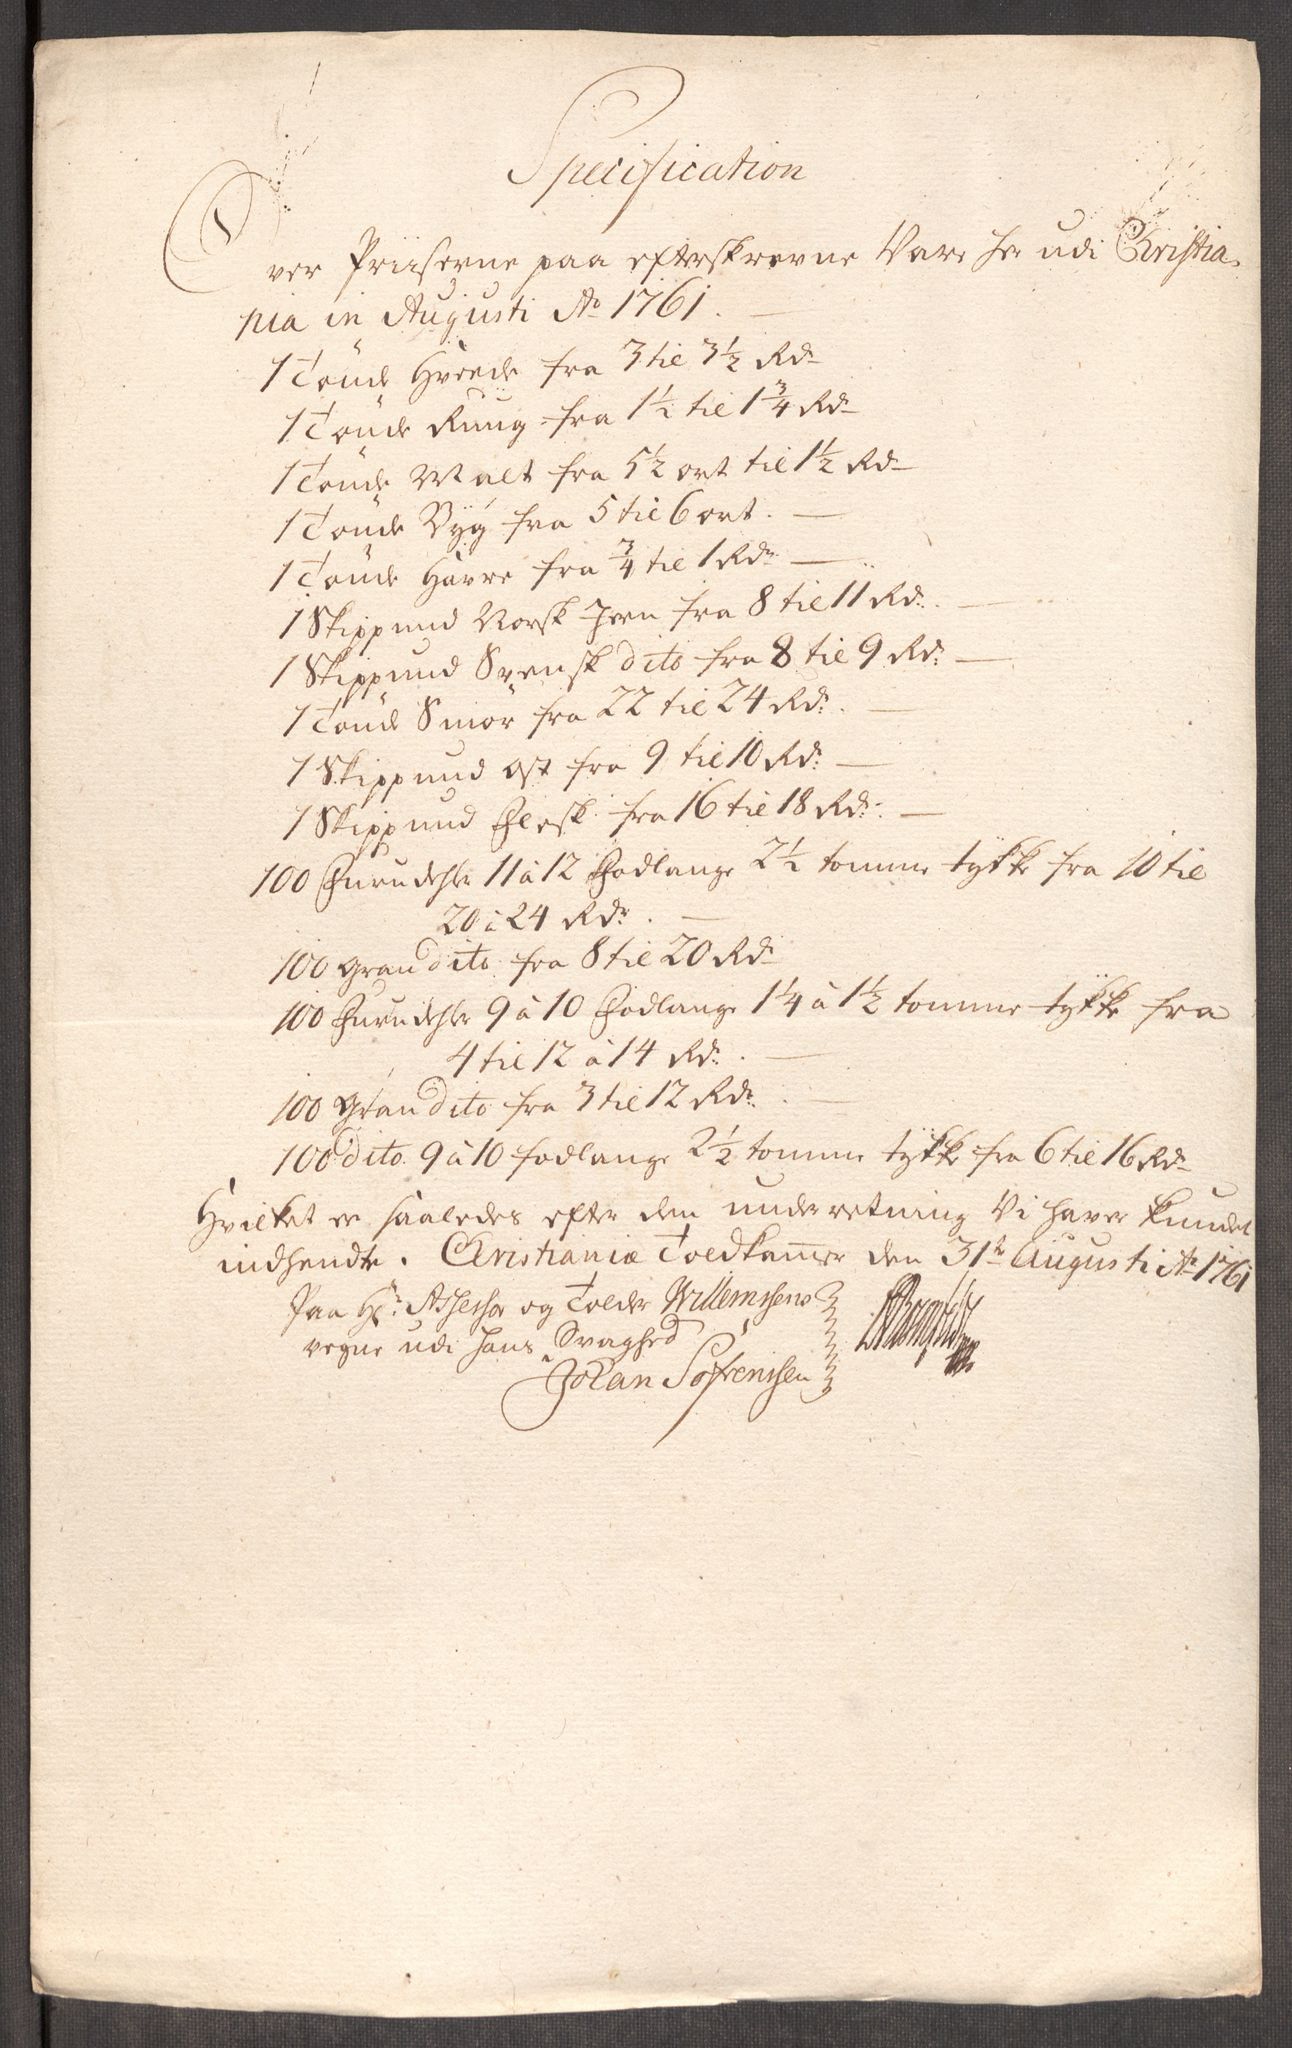 Specification
Over Priiserne paa efterskrevne Vare her udi Christia-
nia in Augusti Ao 1761.
1 Tønde Hvede fra 3 til 3½ Rdr
1 Tønde Rung fra 1½ til 1¾ Rdr
1 Tønde Malt fra 5½ ort til 1½ Rdr
1 Tønde Byg fra 5 til 6 ort.
1 Tønde Havre fra ¾ til 1 Rdr
1 Skippund Norsk Jern fra 8 til 11 Rdr.
1 Skippund Svensk dito fra 8 til 9 Rdr.
1 Tønde Smør fra 22 til 24 Rdr.
1 Skippund Ost fra 9 til 10 Rdr.
1 Skippund Flesk fra 16 til 18 Rdr.
100 Furudehler 11 à 12 Fodlange 2½ tomme tykke fra 10 til
20 à 24 Rdr.
100 Gran dito fra 8 til 20 Rdr
100 Furudehler 9 à 10 Fodlange 1¼ à 1½ tomme tykke fra
4 til 12 à 14 Rdr.
100 Gran dito fra 3 til 12 Rdr.
100 dito 9 à 10 fodlange 2½ tomme tykke fra 6 til 16 Rdr
Hvilket er saaledes efter den underretning Vi haver kundet
indhendte. Christianiæ Toldkammer den 31te Augusti Ao 1761
Paa Hr. Assessor og Tolder Willemsens
vegne udi hans Svaghed
Johan Søfrenssen